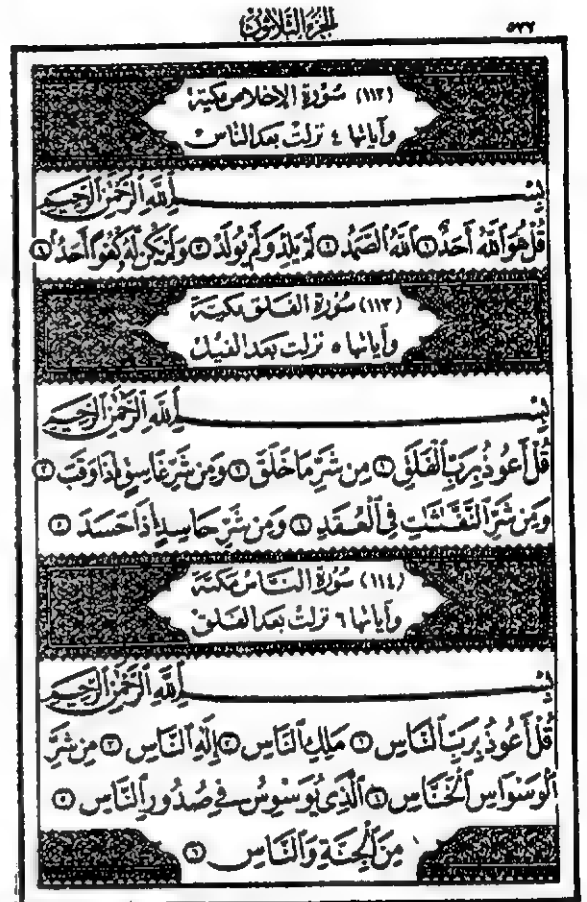 ٥٢٧
الجزء الثلاثون
(١١٢) سورة الإخلاص مكية
وآياتها ٤ نزلت بعد الناس
بِسْمِ ٱللَّهِ ٱلرَّحْمَٰنِ ٱلرَّحِيمِ
قُلْ هُوَ ٱللَّهُ أَحَدٌ ١ ٱللَّهُ ٱلصَّمَدُ ٢ لَمْ يَلِدْ وَلَمْ يُولَدْ ٣ وَلَمْ يَكُن لَّهُ كُفُوًا أَحَدٌ ٤
(١١٣) سورة الفلق مكية
وآياتها ٥ نزلت بعد الفيل
بِسْمِ ٱللَّهِ ٱلرَّحْمَٰنِ ٱلرَّحِيمِ
قُلْ أَعُوذُ بِرَبِّ ٱلْفَلَقِ ١ مِن شَرِّ مَا خَلَقَ ٢ وَمِن شَرِّ غَاسِقٍ إِذَا وَقَبَ ٣
وَمِن شَرِّ ٱلنَّفَّٰثَٰتِ فِي ٱلْعُقَدِ ٤ وَمِن شَرِّ حَاسِدٍ إِذَا حَسَدَ ٥
(١١٤) سورة الناس مكية
وآياتها ٦ نزلت بعد الفلق
بِسْمِ ٱللَّهِ ٱلرَّحْمَٰنِ ٱلرَّحِيمِ
قُلْ أَعُوذُ بِرَبِّ ٱلنَّاسِ ١ مَلِكِ ٱلنَّاسِ ٢ إِلَٰهِ ٱلنَّاسِ ٣ مِن شَرِّ
ٱلْوَسْوَاسِ ٱلْخَنَّاسِ ٤ ٱلَّذِي يُوَسْوِسُ فِي صُدُورِ ٱلنَّاسِ ٥
مِنَ ٱلْجِنَّةِ وَٱلنَّاسِ ٦